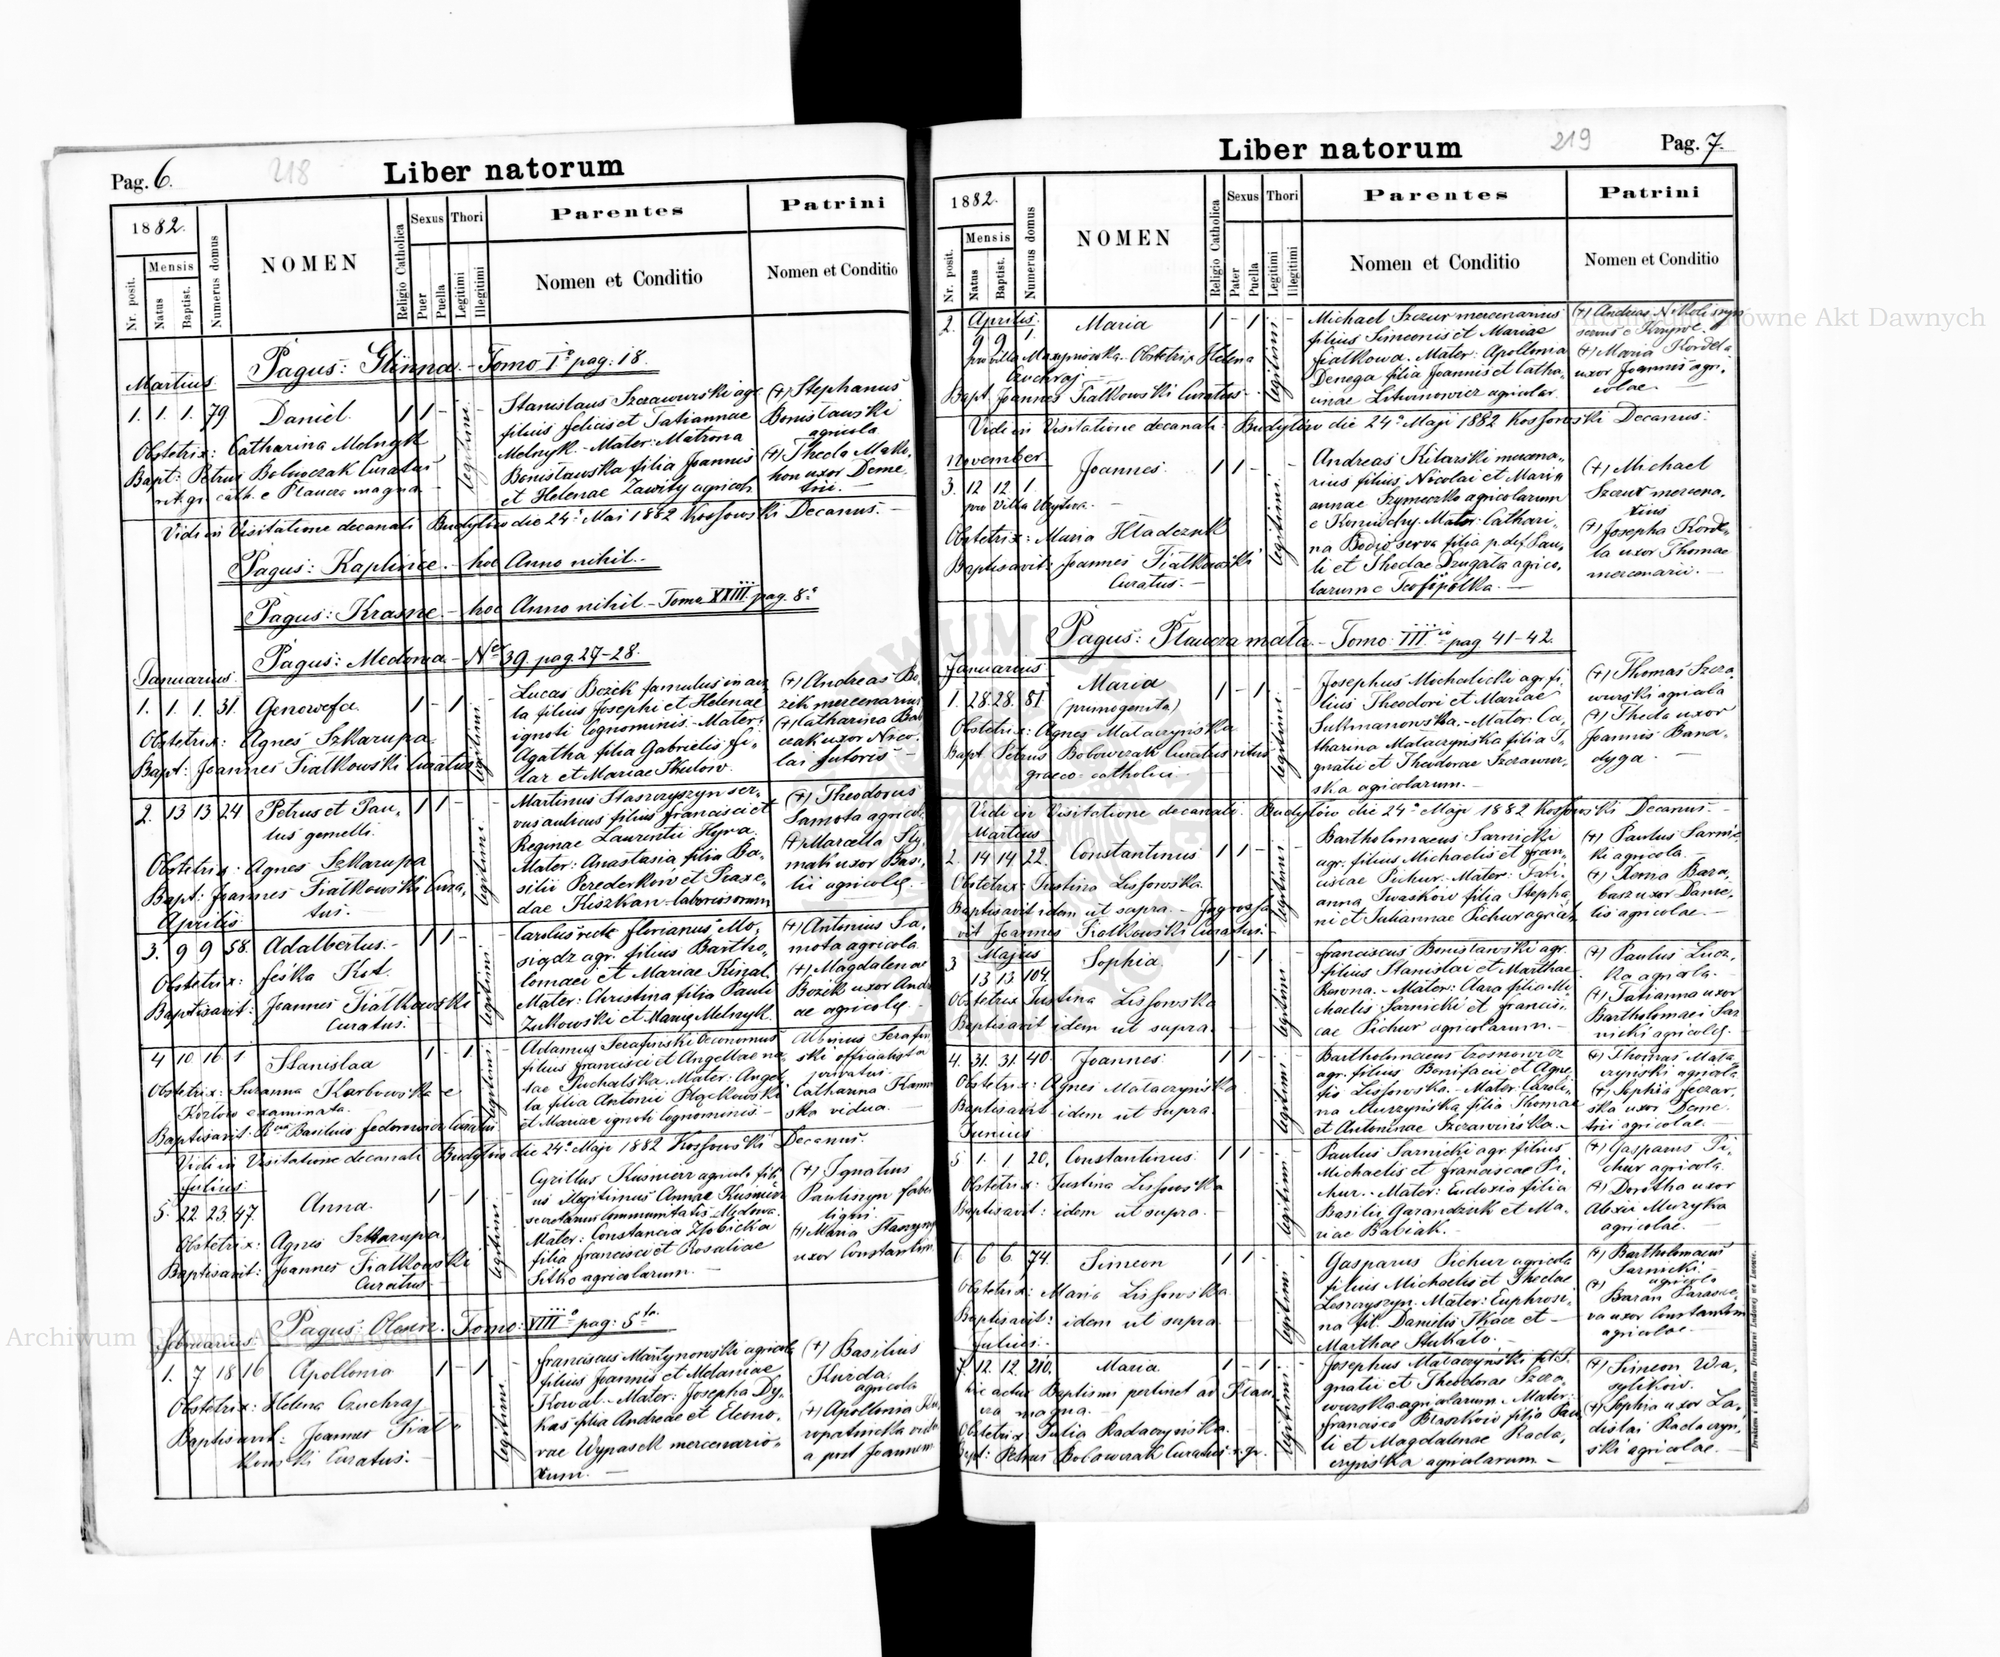 Pag. 6.
218
Liber natorum
1882.
Nr. posit.
Mensis
Natus
Baptist.
Numerus domus
NOMEN
Religio Catholica
Sexus
Puer
Puella
Thori
Legitimi
Illegitimi
Parentes
Nomen et Conditio
Patrini
Nomen et Conditio
Pagus: Glinna. - Tomo I° pag: 18.
Martius
1. 1. 1. 79 Daniel 1 1 -
legitimi
Obstetrix: Catharina Melnyk
Bapt: Petrus Bobowczak Curatus
rit. gr. cath. e Plaucza magna
Stanislaus Szczawurski agr.
filius felicis et Tatiannae
Melnyk. - Mater: Matrona
Bonisławska filia Joannis
et Helenae Zawity agricol.
(+) Stephanus
Bonisławski
agricola
(+) Thecla Mako,
hon uxor Deme
trii. -
Vidi in Visitatione decanali Budyłów die 24ª Mai 1882 Kossowski Decanus. -
Pagus: Kaplince. - hoc Anno nihil. -
Pagus: Krasne - hoc Anno nihil - Tomo XXIII pag. 8ª
Pagus: Medowa - N° 39. pag. 27-28.
Januarius
1. 1. 1. 31. Genowefa 1 - 1 -
legitimi
Obstetrix: Agnes Szkarupa
Bapt: Joannes Fiałkowski Curatus
Lucas Bożek famulus in au
la filius Josephi et Helenae
ignoti Cognominis - Mater:
Agatha filia Gabrielis Fi
lar et Mariae
(+) Andreas Bo,
żek mercenarius
(+) Catharina
uxor Nico
lai sutoris
2. 13 13 24 Petrus et Pau,
lus gemelli. 1 1 -
legitimi
Obstetrix: Agnes Szkarupa
Bapt: Joannes Fiałkowski Cura,
tus. -
Martinus Staszczyszyn ser,
vus aulicus filius francisci et
Reginae Laurentii Hyra.
Mater: Anastasia filia Ba,
silii Perederków et Praxe,
dae Kiszkan laboriosorum
(+) Theodorus
Samota agricol.
(+) Marcella
uxor Basi,
lii agricolę.
Aprilis
3. 9 9 58. Adalbertus. - 1 1 -
legitimi
Obstetrix: feśka Kot.
Baptisavit: Joannes Fiałkowski
Curatus.
Carolus recte florianus Mo,
siądz agr. filius Bartho,
lomaei et Mariae
Mater: Christina filia Pauli
Zukowski et Marię Melnyk.
(+) Antonius Sa,
mota agricola
(+) Magdalena
Bożek uxor Andr
ae agricolę -
4 10 16. 1 Stanislaa 1 - 1
legitimi
Obstetrix: Suzanna Karbowska e
Kozłow examinata.
Baptisavit: Basilius fedorowicz Curatus
Adamus Serafinski Oeconomus
filius francisci et Angellae na
tae Puchalska. Mater: Ange
la filia Antonii
et Mariae ignoti Cognominis -
Albinus Serafin
ski officialista
privatus.
Catharina
ska vidua. -
Vidi in Visitatione decanali Budyłów die 24ª Maji 1882 Kossowski Decanus.
Julius
5. 22. 23. 47. Anna. 1 - 1 -
legitimi
Obstetrix: Agnes Szkarupa.
Baptisavit: Joannes Fiałkowski
Curatus -
Cyrillus Kusnierz agricola fili
us illegitimus Annae Kusnierz
secretarius Communitatis Medowa
Mater: Constancia
filia francisci et Rosaliae
Sitko agricolarum. -
(+) Ignatius
Pauliszyn faber
ligni.
(+) Maria
uxor Constantini
Pagus: Olesin. Tomo: XIII° pag: 5ta.
februarius:
1. 7 18 16 Apollonia 1 - 1 -
legitimi
Obstetrix: Helena Czuchraj
Baptisavit: Joannes Fiał=
kowski Curatus. -
franciscus Martynowski agricola
filius Joannis et Melaniae
Kowal - Mater: Josepha Dy,
kas filia Andreae et Eleono,
rae Wypasek mercenario=
rum. -
(+) Basilius
Kurda.
agricola
(+) Apollonia
vidu
a post Joannem
Pag. 7.
219
Liber natorum
1882.
Nr. posit.
Mensis
Natus
Baptist.
Numerus domus
NOMEN
Religio Catholica
Sexus
Pater
Puella
Thori
Legitimi
Illegitimi
Parentes
Nomen et Conditio
Patrini
Nomen et Conditio
Aprilis.
2. 9 9 1. Maria 1 - 1 -
legitimi
pro villa Obstetrix Helena
Czuchraj -
Bapt. Joannes Fiałkowski Curatus -
Michael Szczur mercenarius
filius Simeonis et Mariae
fiałkowa. Mater: Apollonia
Denega filia Joannis et Catha,
rinae Litwinowicz agricolar.
(+) Andreas
servus e Krzywe.
(+) Maria Kordela
uxor Joannis agri,
colae -
Vidi in Visitatione decanali: Budyłów die 24ª Maji 1882 Kossowski Decanus:
November
3. 12 12 1. Joannes. 1 1 -
legitimi.
pro Villa -
Obstetrix: Maria Hładczuk
Baptisavit: Joannes Fiałkowski
Curatus. -
Andreas Kitarski mercena,
rius filius Nicolai et Mari,
annae Szymeczko agricolarum
e Koniuchy. Mater: Cathari,
na Bodio serva filia p. def. Pau,
li et Theclae Dzugata agrico,
larum e Teofipolka. -
(+) Michael
Szczur mercena,
rius
(+) Josepha Korde,
la uxor Thomae
mercenarii. -
Pagus: Płaucza mała. - Tomo: III° pag 41-42.
Januarius
1. 28. 28. 81 Maria
(primogenita) 1 - 1 -
legitimi
Obstetrix: Agnes Mataczyńska
Bapt. Petrus Bobowczak Curatus ritus
graeco=catholici. -
Josephus Michalicki agr. fi,
lius Theodori et Mariae
Sukmanowska. - Mater: Ca,
tharina Mataczyńska filia I,
gnatii et Theodorae Szczawur,
ska agricolarum. -
(+) Thomas Szcza,
wurski agricola
(+) Thecla uxor
Joannis Bana,
dyga. -
Vidi in Visitatione decanali. Budyłów die 24ª Maji 1882 Kossowski Decanus. -
Martius
2. 14 14 22. Constantinus 1 1 -
legitimi
Obstetrix: Justina Lissowska.
Baptisavit idem ut supra. -
Joannes Fiałkowski Curatus.
Bartholomaeus Sarnicki
agr. filius Michaelis et fran,
ciscae Pichur. - Mater: Tati,
anna Iwasków filia Stepha,
ni et Julianae Pichur agricol.
(+) Paulus Sarnic,
ki agricola. -
(+) Bara,
basz uxor Danie,
lis agricolae. -
Majus
3 13 13. 104. Sophia 1 - 1 -
legitimi
Obstetrix Justina Lissowska
Baptisavit idem ut supra. -
franciscus Bonisławski agr.
filius Stanislai et Marthae
Rowna. - Mater: Clara filia Mi,
chaelis Sarnicki et francis,
cae Pichur agricolarum. -
(+) Paulus Lucz,
ka agricola. -
(+) Tatianna uxor
Bartholomaei Sar
nicki agricolę.
4. 31. 31. 40. Joannes. 1 1 -
legitimi
Obstetrix: Agnes Mataczyńska
Baptisavit: idem ut supra.
Bartholomaeus Czosnowicz
agr. filius Bonifacii et Agne,
tis Lissowska. - Mater: Caroli,
na Murzyńska filia Thomae
et Antoninae Szczawińska. -
(+) Thomas Mata,
czyński agricola
(+) Sophia feczar,
ska uxor Deme
trii agricolae. -
Junius
5 1. 1 20. Constantinus. 1 1 -
legitimi
Obstetrix: Justina Lissowska
Baptisavit: idem ut supra. -
Paulus Sarnicki agr. filius
Michaelis et franciscae Pi,
chur. - Mater: Eudoxia filia
Basilii Garandziuk et Ma,
riae Babiak. -
(+) Gasparus Pi,
chur agricola.
(+) Dorotha uxor
Alexii Muzyka
agricolae. -
6. 6 6. 74. Simeon 1 1 -
legitimi
Obstetrix: Maria Lissowska
Baptisavit: idem ut supra.
Gasparus Pichur agricola
filius Michaelis et Theclae
Leszczyszyn. Mater: Euphrosi,
na fil. Danielis Tkacz et -
Marthae Stukalo. -
(+) Bartholomaeus
Sarnicki
agricola
(+) Baran Parasce,
va uxor Constantini
agricolae. -
Julius
7. 12. 12. 210. Maria 1 - 1 -
legitimi
hic actus Baptismi pertinet ad Plau
cza magna. -
Obstetrix: Julia Radaczyńska.
Bapt: Petrus Bobowczak Curatus r. gr.
Josephus Mataczyński fil. I,
gnatii et Theodorae Szcza,
wurska agricolarum. Mater:
francisca filia Pau
li et Magdalenae Rada,
czyńska agricolarum. -
(+) Simeon Wa,
sylków.
(+) Sophia uxor La,
dislai Radaczyń,
ski agricolae. -
Drukiem i nakładem Drukarni Ludowej we Lwowie.
Archiwum Główne Akt Dawnych
Archiwum Główne Akt Dawnych